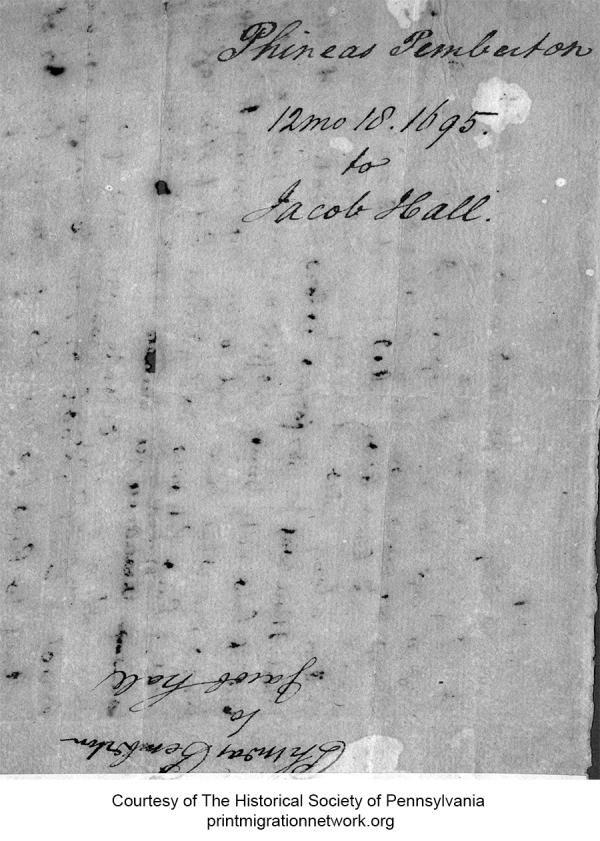 Phineas Pemberton
12mo 18. 1695.
to
Jacob Hall.
Phineas Pemberton
to
Jacob Hall
Courtesy of The Historical Society of Pennsylvania
printmigrationnetwork.org